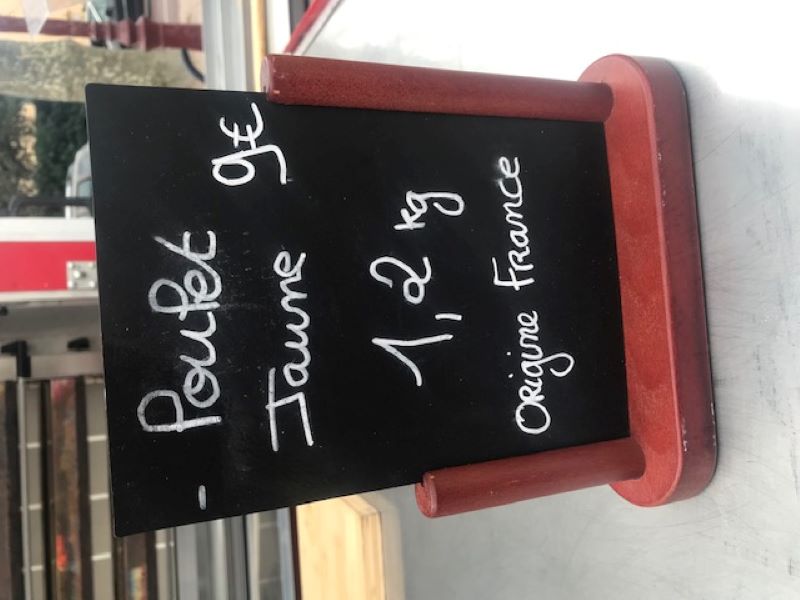 - Poulet
Jaune 9€
1,2 kg
Origine France